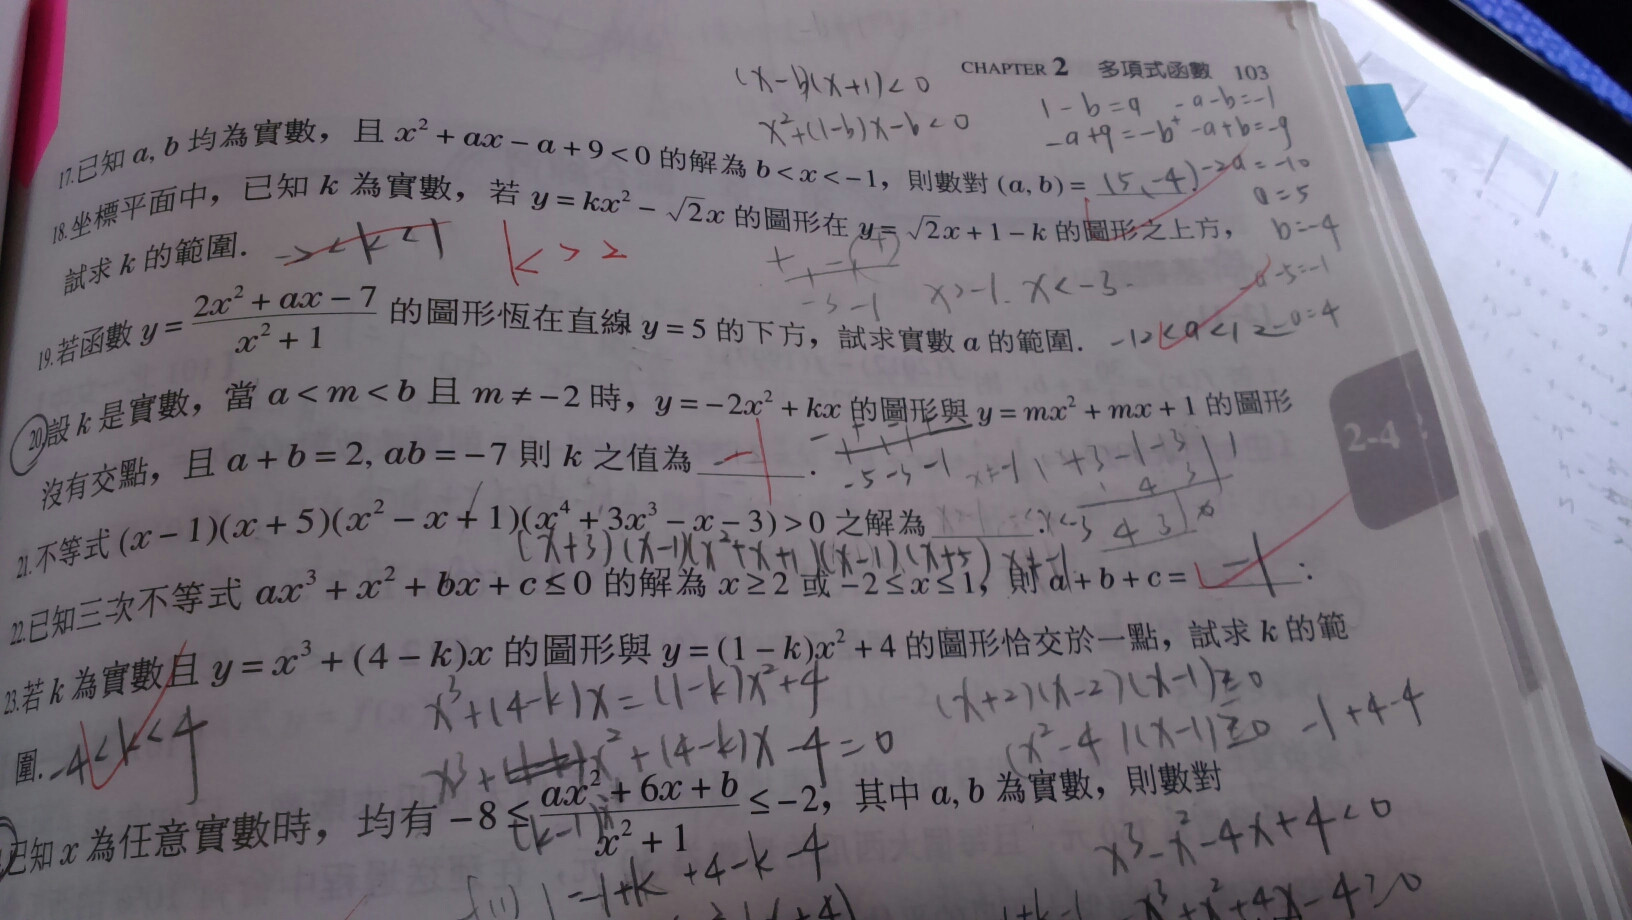 CHAPTER 2 多項式函數 103
(x-b)(x+1)<0
x²+(1-b)x-b<0
1-b=a -a-b=-1
-a+9=-b -a+b=-9
-2a=-10
a=5
b=-4
17.已知 a, b 均為實數，且 x² + ax − a + 9 < 0 的解為 b < x < −1，則數對 (a, b) = (5,-4)
18.坐標平面中，已知 k 為實數，若 y = kx² − √2x 的圖形在 y = √2x + 1 − k 的圖形之上方，
試求 k 的範圍． k > 2
x>-1. x<-3.
19.若函數 y = (2x² + ax − 7)/(x² + 1) 的圖形恆在直線 y = 5 的下方，試求實數 a 的範圍． -12<a<12
20.設 k 是實數，當 a < m < b 且 m ≠ −2 時，y = −2x² + kx 的圖形與 y = mx² + mx + 1 的圖形
沒有交點，且 a + b = 2, ab = −7 則 k 之值為 ．
-5 -3 -1
21.不等式 (x − 1)(x + 5)(x² − x + 1)(x⁴ + 3x³ − x − 3) > 0 之解為 ．
(x+3)(x-1)(x²+x+1)(x-1)(x+5)
22.已知三次不等式 ax³ + x² + bx + c ≤ 0 的解為 x ≥ 2 或 −2 ≤ x ≤ 1，則 a + b + c = -1 ．
23.若 k 為實數且 y = x³ + (4 − k)x 的圖形與 y = (1 − k)x² + 4 的圖形恰交於一點，試求 k 的範
圍． -4<k<4
x³+(4-k)x=(1-k)x²+4
x³+ (k-1)x² +(4-k)x-4=0
(x+2)(x-2)(x-1)≥0
(x²-4)(x-1)≥0 -1+4-4
已知 x 為任意實數時，均有 −8 ≤ (ax² + 6x + b)/(x² + 1) ≤ −2，其中 a, b 為實數，則數對
1-1+k+4-k-4
x³-x²-4x+4<0
-x³+x²+4x-4>0
2-4